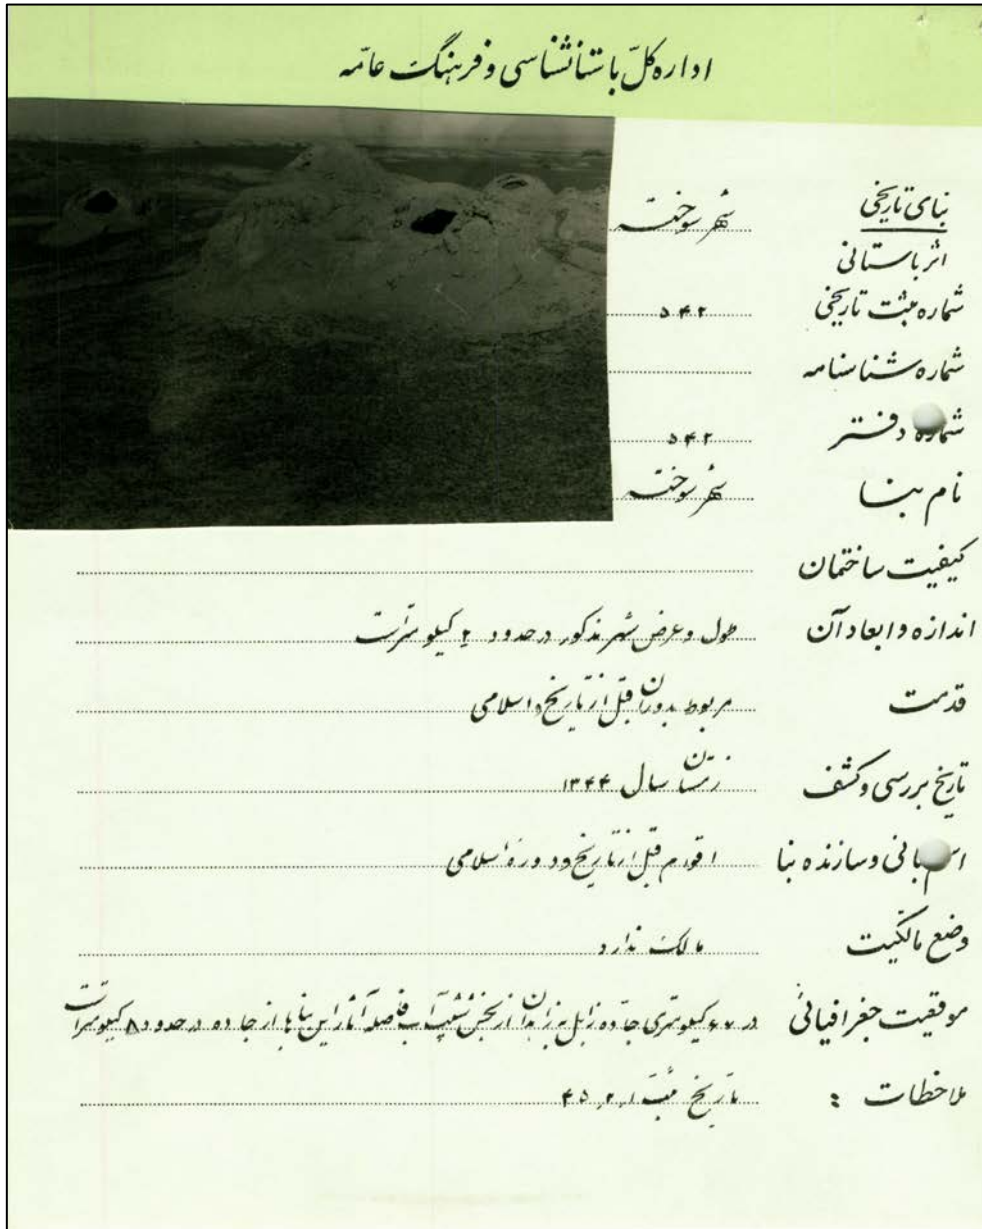 اداره کلّ باستانشناسی و فرهنگ عامّه
بنای تاریخی شهر سوخته
اثر باستانی
شماره ثبت تاریخی ۵۴۲
شماره شناسنامه
شماره دفتر ۵۴۲
نام بنا شهر سوخته
کیفیت ساختمان
اندازه و ابعاد آن طول و عرض شهر مذکور در حدود ۲ کیلومتر است
قدمت مربوط بدوران قبل از تاریخ و اسلامی
تاریخ بررسی و کشف زمستان سال ۱۳۴۴
اسم بانی و سازنده بنا اقوام قبل از تاریخ و دوره اسلامی
وضع مالکیت مالک ندارد
موقعیت جغرافیائی در ۶۷ کیلومتری جاده زابل بزاهدان از بخش شیب آب فاصله آثار این بناها از جاده در حدود ۸ کیلومتر است
ملاحظات : تاریخ ثبت ۴۵،۲،۱